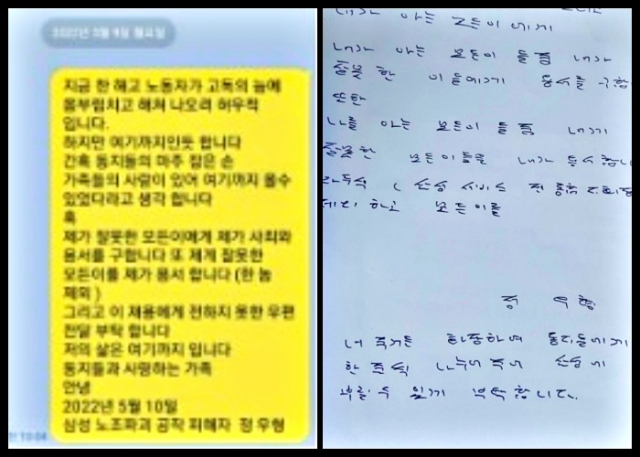 2022년 5월 9일 월요일
지금 한 해고 노동자가 고독의 늪에
몸부림치고 헤쳐 나오려 허우적
입니다.
하지만 여기까지인듯 합니다
간혹 동지들의 마주 잡은 손
가족들의 사랑이 있어 여기까지 올수
있었다라고 생각 합니다
혹
제가 잘못한 모든이에게 제가 사죄와
용서를 구합니다 또 제게 잘못한
모든이를 제가 용서 합니다 (한 놈
제외 )
그리고 이 채용에게 전하지 못한 우편
전달 부탁 합니다
저의 삶은 여기까지 입니다
동지들과 사랑하는 가족
안녕
2022년 5월 10일
삼성 노조파괴 공작 피해자 정 우형
내가 아는 모든이에게
내가 아는 모든이 들중 내가
잘못 한 이들에게 용서를 구함
또한
나를 아는 모든이 들중 내게
잘못한 모든이들을 내가 용서
하고 모든이를
정 우형
한 줌씩 나누어
수 있게 부탁 합니다.